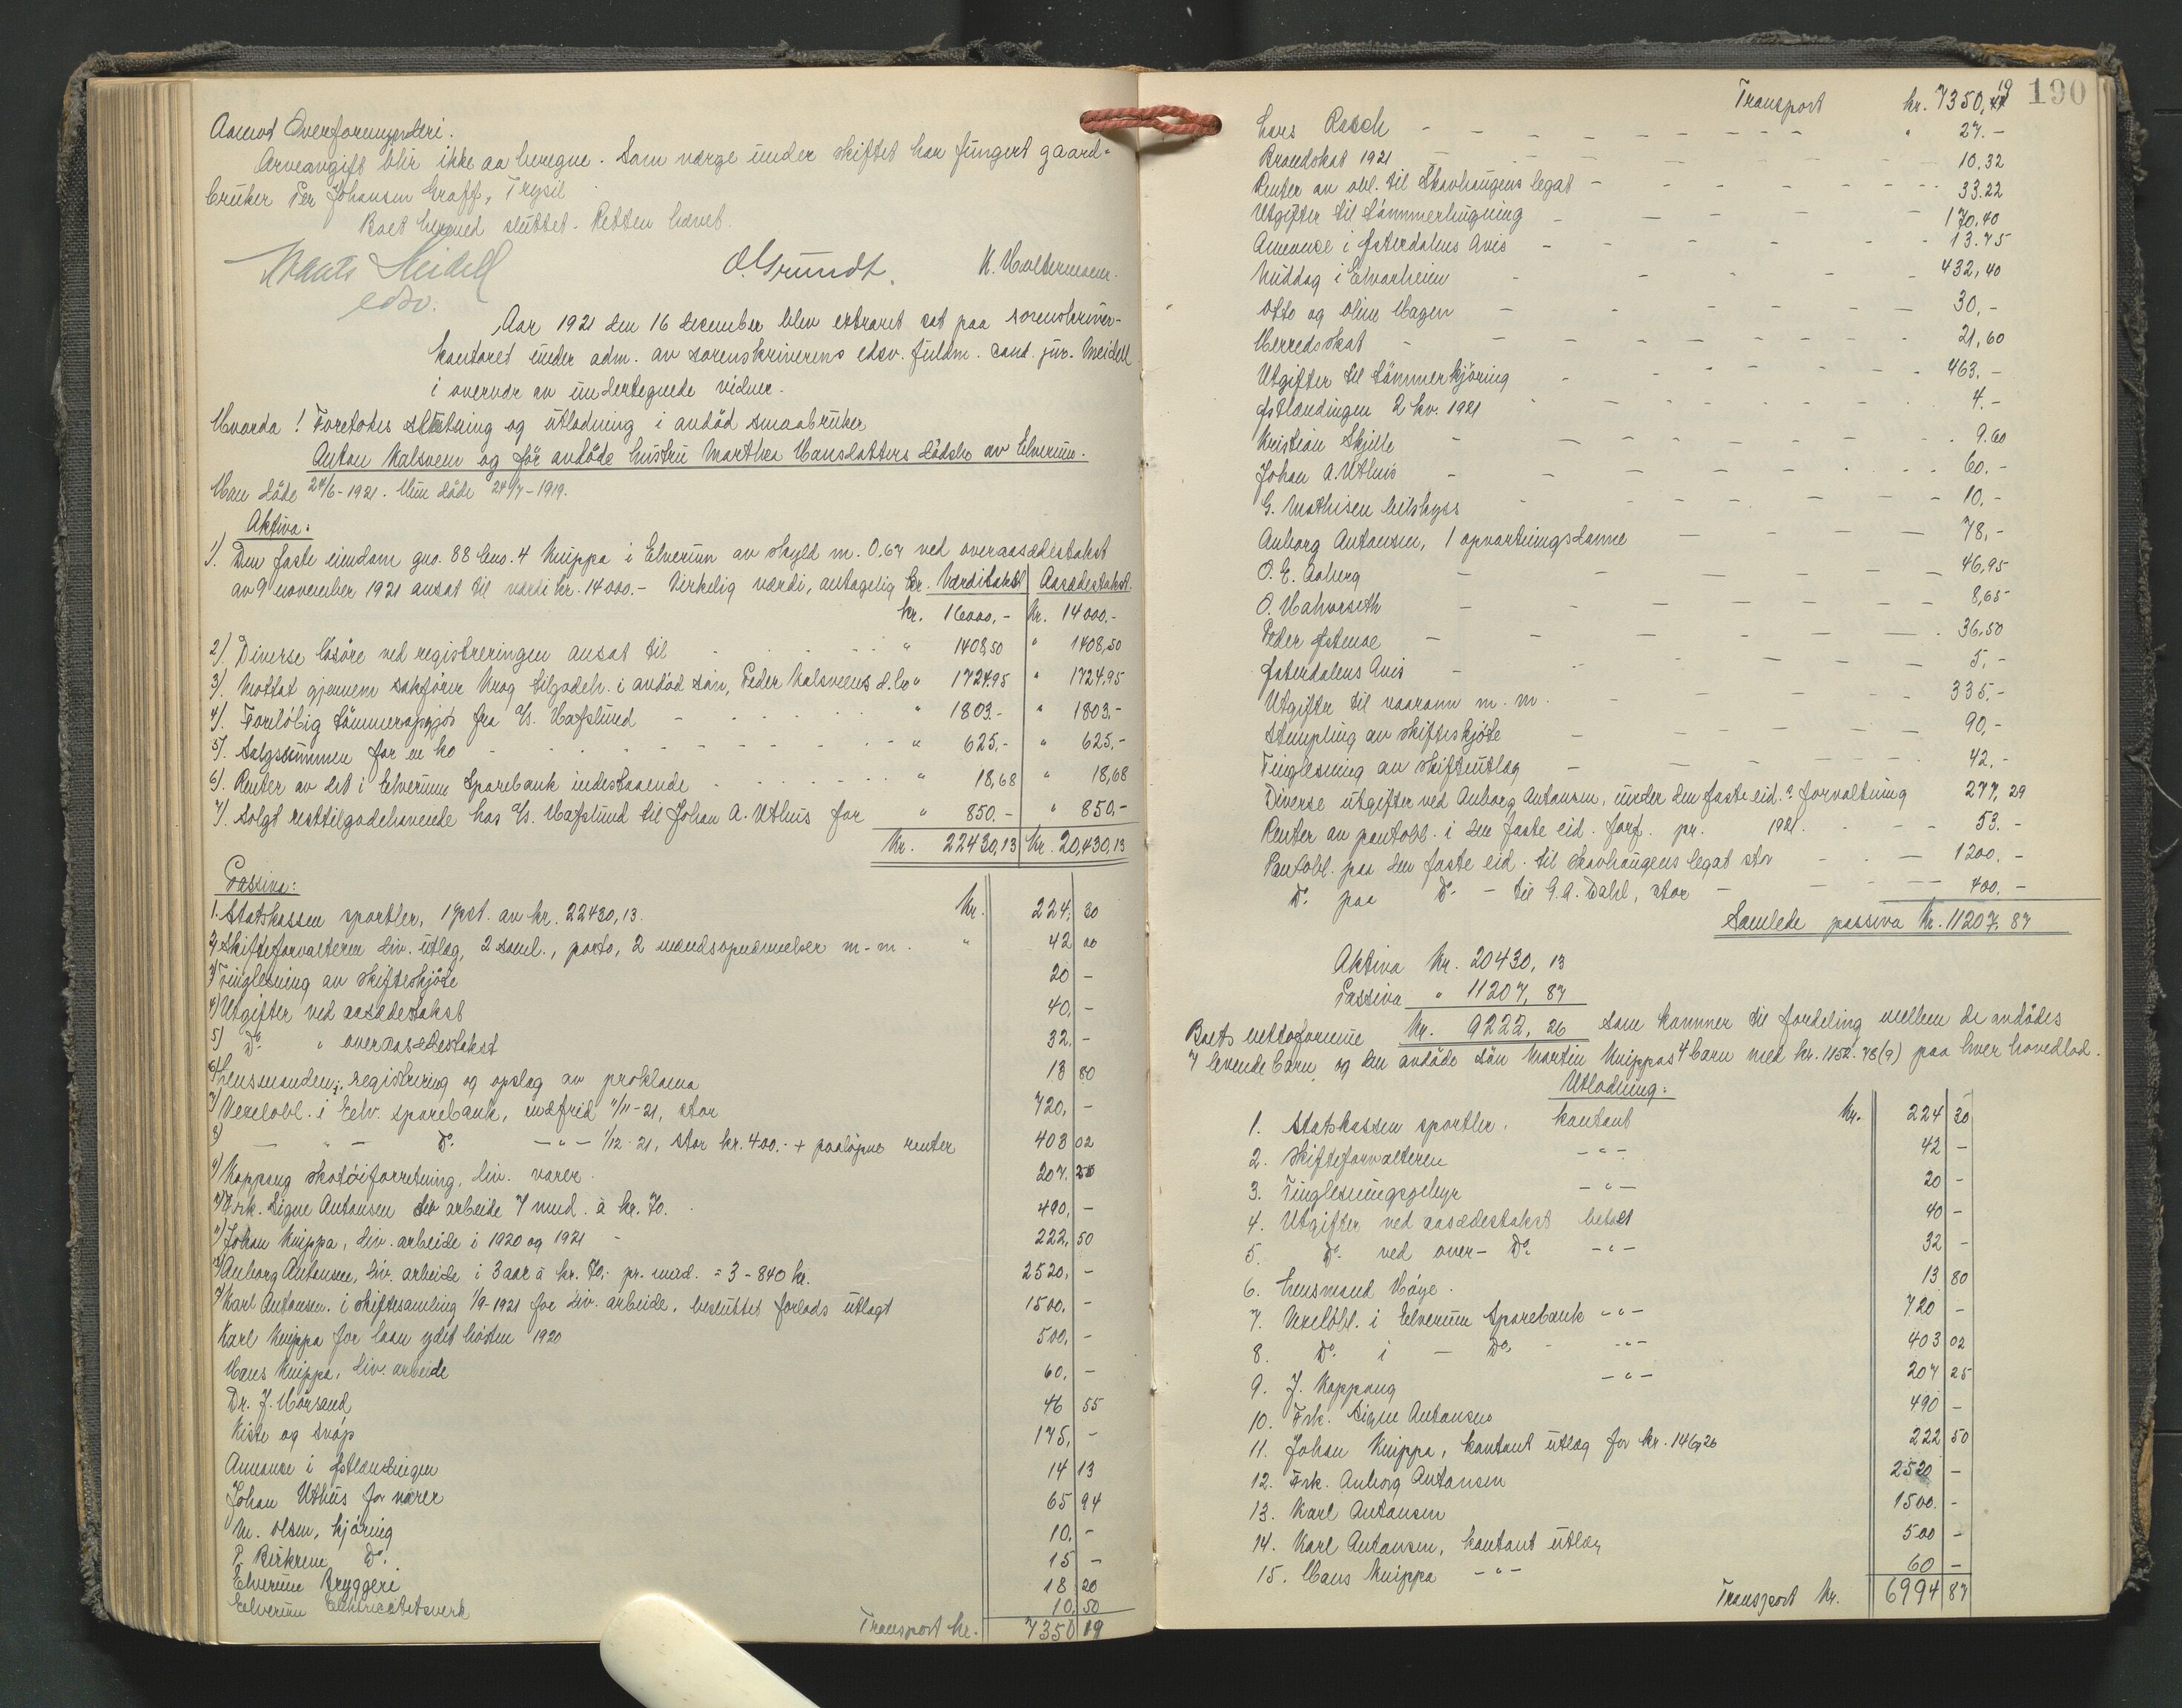 Aamot Overformynderi.
Arveavgift blir ikke aa beregne. Som verge under skiftet har fungert gaard-
bruker Per Johansen Graff, Trysil
Boet hermed sluttet. Retten hævet.
Meidell O. Grundt. K. Haltermann.
edsv.
Aar 1921 den 16 december blev extraret sat paa sorenskriver-
kontoret under adm. av sorenskriverens edsv. fuldm. cand. jur. Meidell
i overvær av undertegnede vidner.
Hvorda! Foretokes slutning og utlodning i avdöd smaabruker
Anton Kalsveen og för avdöde hustru Marthea Hansdatters dödsbo av Elverum.
Han döde 24/6-1921. Hun döde 24/7-1919.
Aktiva:
1). Den faste eiendom gno. 88 bno. 4 Knippa i Elverum av skyld m. 0.67 ved overaasædestakst
av 9 november 1921 ansat til værdi kr. 14000.- Virkelig værdi, antagelig kr. Værditakst Aasædestakst.
kr. 16000,- kr. 14000.-
2). Diverse lösöre ved registreringen ansat til " 1408,50 " 1408,50
3). Mottat gjennem sakförer Krog tilgodeh. i avdöd sön, Peder Kalsveens d.bo " 1724.95 " 1724.95
4). Forelöbig tömmeropgjör fra A/S. Hafslund " 1803.- " 1803.-
5). Salgssummen for en ko " 625,- " 625,-
6). Renter av det i Elverum Sparebank indestaaende " 18,68 " 18,68
7). Solgt resttilgodehavende hos A/S. Hafslund til Johan A. Uthus for " 850.- " 850.-
Kr. 22430,13 Kr. 20,430,13
Passiva:
1. Statskassen sportler, 1 pct. av kr. 22430,13. Kr. 224, 30
2) Skifteforvalteren div. utlæg, 2 saml., porto, 2 mandsopnævnelser m.m. " 42 00
3) Tinglesning av skifteskjöte 20 -
4) Utgifter ved aasædestakst 40, -
5) Do. " overaasædestakst 32. -
6) Lensmanden, registrering og opslag av proklama 13 80
7) Vexelobl. i Elv. sparebank, indfrid 11/11-21, stor 720, -
8) - " - Do. - " - 1/12-21, stor kr. 400.- + paalöpne renter 403 02
9) Koppang skotöiforretning, div. varer. 207. 25
10) Frk. Signe Antonsen div arbeide 7 mnd. à kr. 70. 490, -
11) Johan Knippa, div. arbeide i 1920 og 1921 222, 50
12) Anborg Antonsen, div. arbeide i 3 aar à kr. 70,- pr. mnd. = 3 - 840 kr. 2520, -
13) Karl Antonsen. i skiftesamling 1/9-1921 for div. arbeide, besluttet forlods utlagt 1500. -
Karl Knippa for laan ydet hösten 1920 500, -
Hans Knippa, div. arbeide 60, -
Dr. J. Hörsand 46 55
Kiste og svöp 175, -
Annonse i Østlendingen 14 13
Johan Uthus for varer 65 94
M. Olsen, kjöring 10. -
P. Birkrem Do. 15 -
Elverum Bryggeri 18 20
Elverum Elektricitetsverk 10. 50
Transport kr. 7350 19
190
Transport kr. 7350, 19
Lars Rasch " 27.-
Brandskat 1921 10,32
Renter av obl. til Skavhaugens legat 33.22
Utgifter til tömmerhugning 170,40
Annonse i Østerdalens Avis 13.75
Middag i Elvarheim 432,40
Otto og Oline Hagen 30,-
Herredsskat 21,60
Utgifter til tömmerkjöring 463.-
Østlendingen 2 kv. 1921 4.-
Kristian Skjille 9.60
Johan A. Uthus 60.-
G. Mathisen bilskyss 10.-
Anborg Antonsen, 1 opvartningsdame 78,-
O. E. Aaberg 46,95
O. Halvorseth 8,65
Peder Østmoe 36,50
Østerdalens Avis 5,-
Utgifter til vaaronn m. m. 335.-
Stempling av skifteskjöte 90,-
Tinglesning av skifteutlæg 42.-
Diverse utgifter ved Anborg Antonsen, under den faste eid.s forvaltning 277, 29
Renter av pantobl. i den faste eid. forf. pr. 1921. 53.-
Pantobl. paa den faste eid. til Skavhaugens legat stor 1200.-
Do. paa Do. - til G. A. Dahl, stor 400.-
Samlede passiva Kr. 11207, 87
Aktiva Kr. 20430, 13
Passiva " 11207, 87
Boets nettoformue Kr. 9222, 26 som kommer til fordeling mellem de avdödes
7 levende barn og den avdöde sön Martin Knippas 4 barn med kr. 1152.78(9) paa hver hovedlod.
Utlodning:
1. Statskassen sportler. kontant Kr. 224 30
2. Skifteforvalteren - " - 42 -
3. Tinglesningsgebyr - " - 20 -
4. Utgifter ved aasædestakst betalt 40 -
5. Do. ved over- Do. - " - 32 -
6. Lensmand Höye. 13 80
7. Vexelobl. i Elverum Sparebank - " - 720 -
8. Do. i - Do. - " - 403 02
9. J. Koppang - " - 207 25
10. Frk. Signe Antonsens 490 -
11. Johan Knippa, kontant utlæg for kr. 146,26 222 50
12. Frk. Anborg Antonsen 2520 -
13. Karl Antonsen 1500. -
14. Karl Antonsen, kontant utlæg 500 -
15. Hans Knippa - " - 60 -
Transport kr. 6994 87